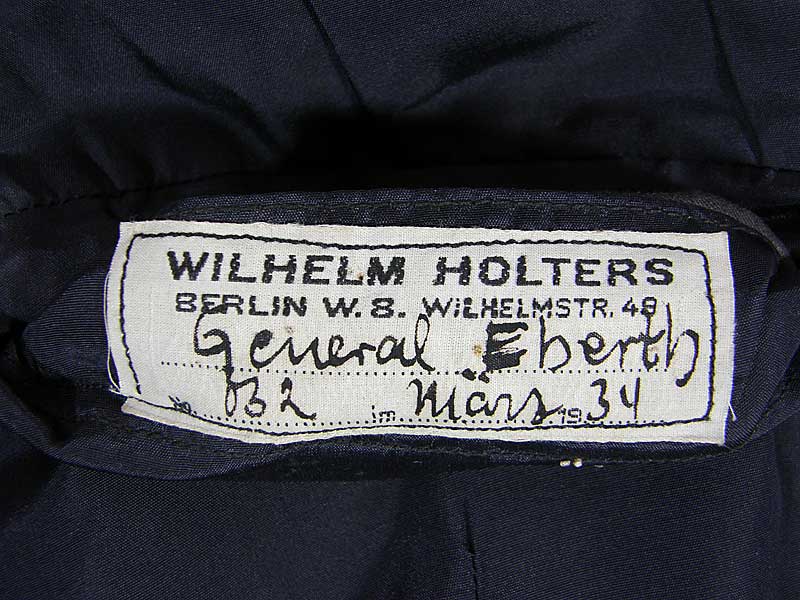 WILHELM HOLTERS
BERLIN W. 8. WILHELMSTR. 49
General Eberth
No. 132 im März 1934